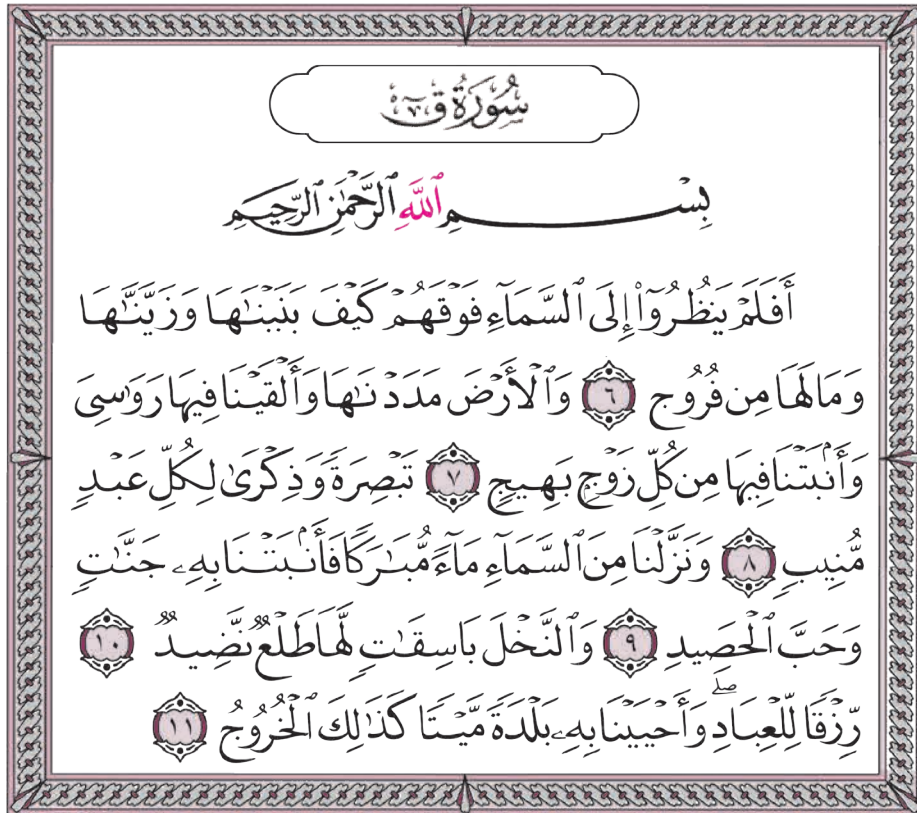 سُورَةُ قٓ
بِسْمِ ٱللَّهِ ٱلرَّحْمَٰنِ ٱلرَّحِيمِ
أَفَلَمْ يَنظُرُوٓا۟ إِلَى ٱلسَّمَآءِ فَوْقَهُمْ كَيْفَ بَنَيْنَٰهَا وَزَيَّنَّٰهَا
وَمَا لَهَا مِن فُرُوجٍ ٦ وَٱلْأَرْضَ مَدَدْنَٰهَا وَأَلْقَيْنَا فِيهَا رَوَٰسِىَ
وَأَنۢبَتْنَا فِيهَا مِن كُلِّ زَوْجٍۭ بَهِيجٍ ٧ تَبْصِرَةً وَذِكْرَىٰ لِكُلِّ عَبْدٍ
مُّنِيبٍ ٨ وَنَزَّلْنَا مِنَ ٱلسَّمَآءِ مَآءً مُّبَٰرَكًا فَأَنۢبَتْنَا بِهِۦ جَنَّٰتٍ
وَحَبَّ ٱلْحَصِيدِ ٩ وَٱلنَّخْلَ بَاسِقَٰتٍ لَّهَا طَلْعٌ نَّضِيدٌ ١٠
رِّزْقًا لِّلْعِبَادِ ۖ وَأَحْيَيْنَا بِهِۦ بَلْدَةً مَّيْتًا كَذَٰلِكَ ٱلْخُرُوجُ ١١